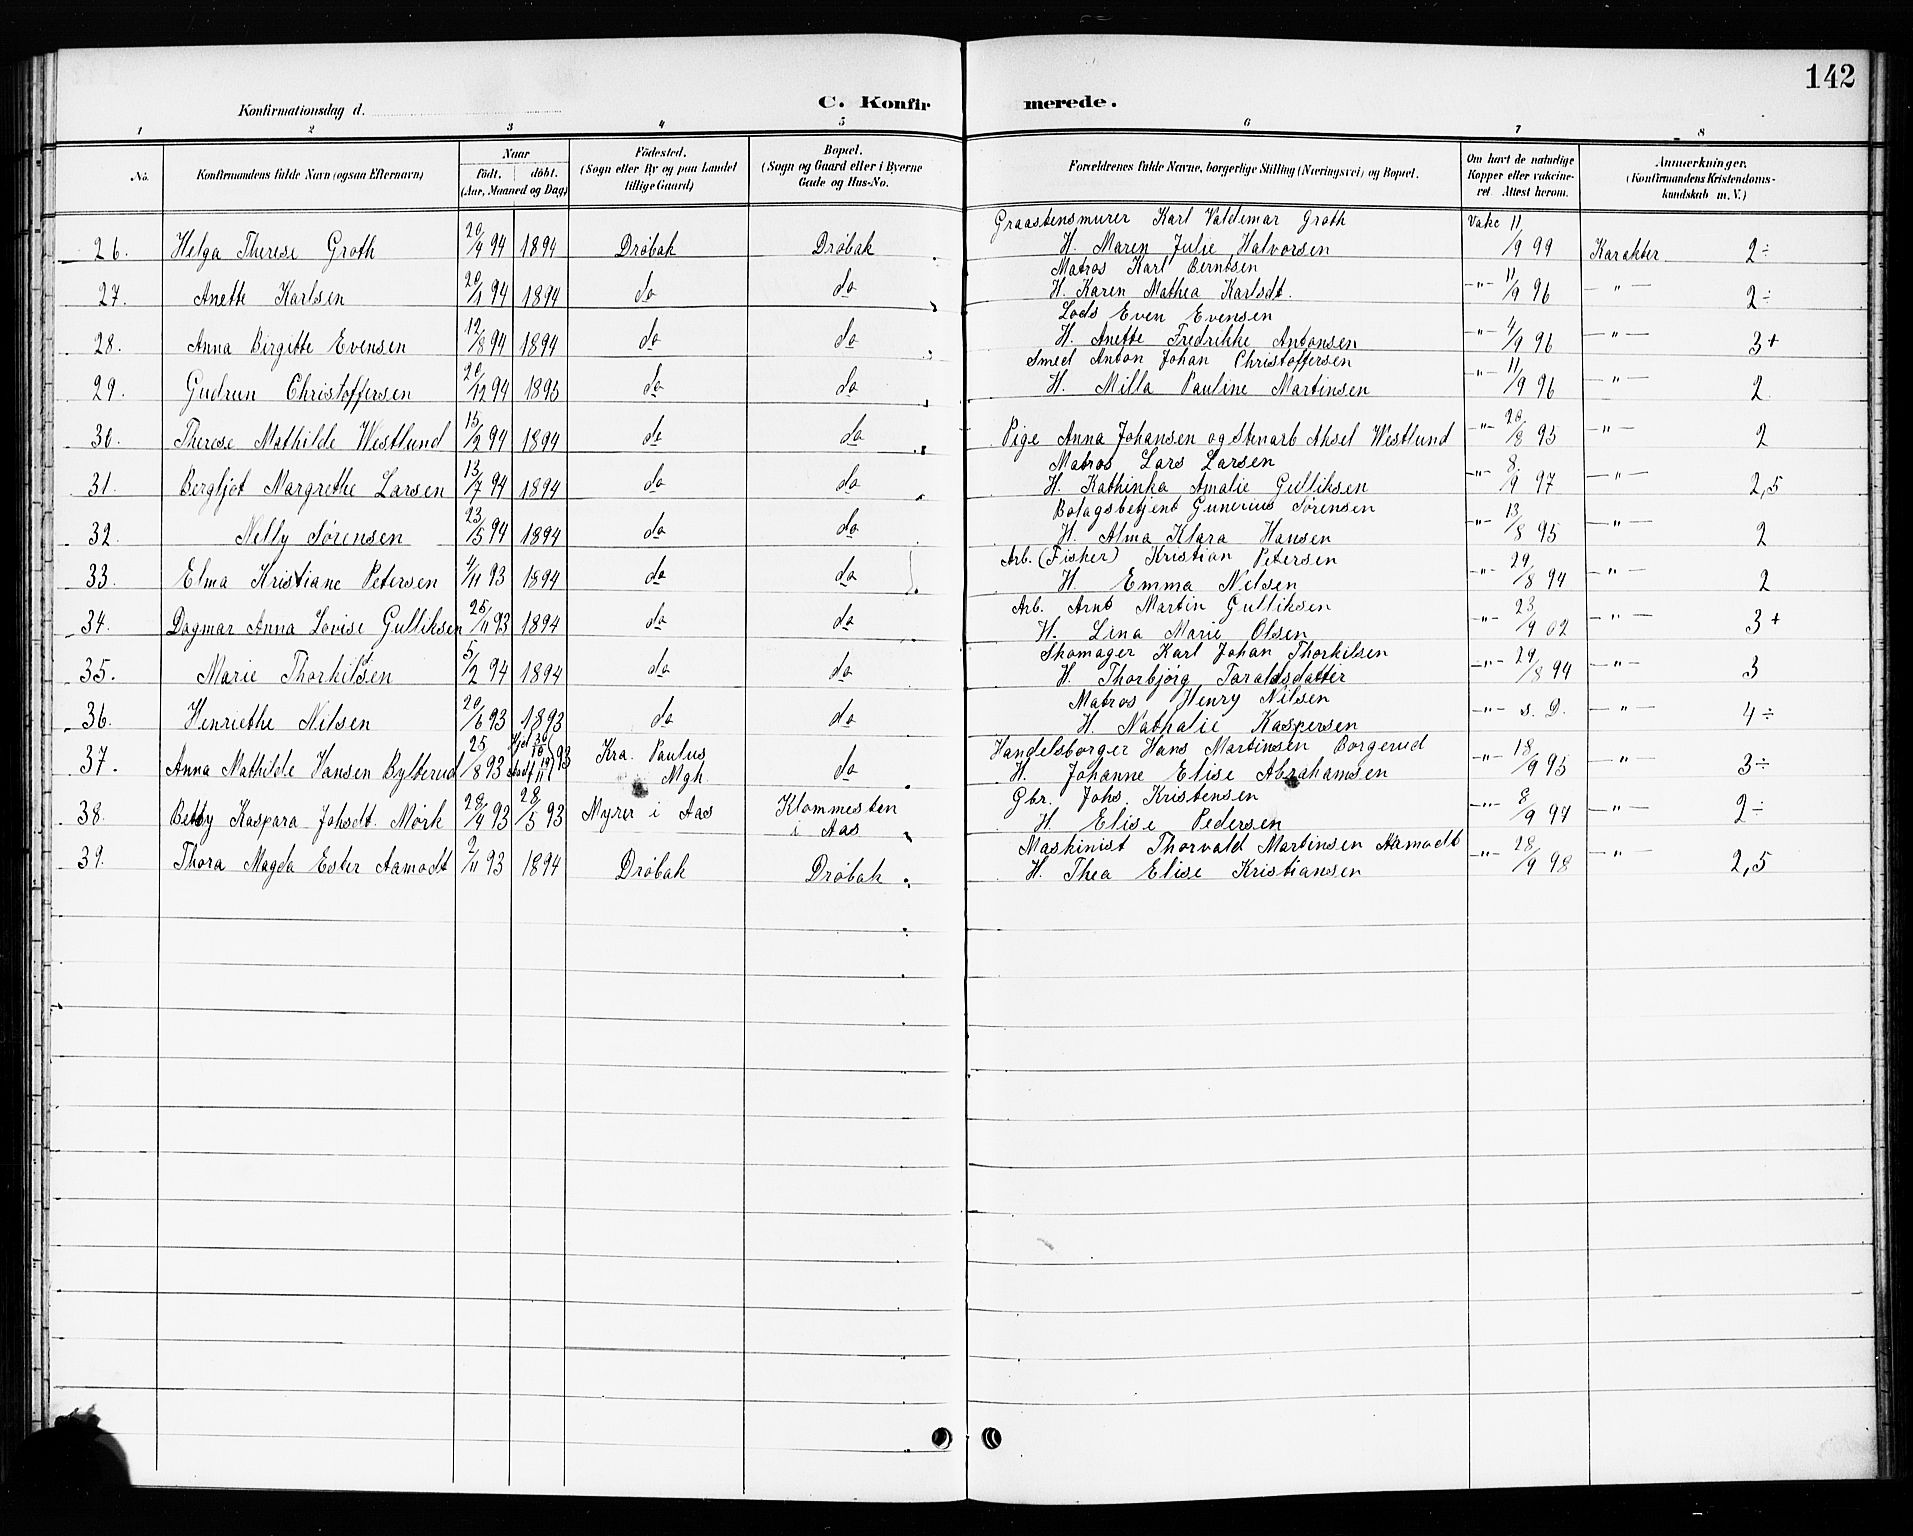 142
Konfirmationsdag d. C. Konfirmerede.
1 2 3 4 5 6 7 8
No. Konfirmandens fulde Navn (ogsaa Efternavn) Naar födt. döbt. (Aar, Maaned og Dag) Födested. (Sogn eller By og paa Landet tillige Gaard) Bopæl. (Sogn og Gaard eller i Byerne Gade og Hus-No. Forældrenes fulde Navne, borgerlige Stilling (Næringsvei) og Bopæl. Om havt de naturlige Kopper eller vakcineret. Attest herom. Anmærkninger. (Konfirmandens Kristendomskundskab m. V.)
26. Helga Therese Groth 20/4 94 1894 Drøbak Drøbak Graastensmurer Karl Valdemar Groth
H. Maren Julie Halvorsen Vakc 11/9 99 Karakter 2÷
27. Anette Karlsen 20/1 94 1894 do do Matros Karl Berntsen
H. Karen Mathea Karlsdt. -"- 11/9 96 -"- 2÷
28. Anna Birgitte Evensen 12/8 94 1894 do do Lods Even Evensen
H. Anette Fredrikke Antonsen -"- 4/9 96 -"- 3+
29. Gudrun Christoffersen 20/12 94 1895 do do Smed Anton Johan Christoffersen
H. Milla Pauline Martinsen -"- 11/9 96 -"- 2
30. Therese Mathilde Westlund 15/2 94 1894 do do Pige Anna Johansen og Stenarb Aksel Westlund -"- 20/8 95 -"- 2
31. Bergljot Margrethe Larsen 13/7 94 1894 do do Matros Lars Larsen
H. Kathinka Amalie Gulliksen -"- 8/9 97 -"- 2,5
32. Nelly Sørensen 23/5 94 1894 do do Bolagsbetjent Gunerius Sørensen
H. Alma Klara Hansen -"- 13/8 95 -"- 2
33. Elma Kristiane Petersen 4/11 93 1894 do do Arb. (Fisker) Kristian Petersen
H. Emma Nilsen -"- 29/8 94 -"- 2
34. Dagmar Anna Lovise Gulliksen 25/11 93 1894 do do Arb. Arnt Martin Gulliksen
H. Lina Marie Olsen -"- 23/9 02 -"- 3+
35. Marie Thorkilsen 5/2 94 1894 do do Skomager Karl Johan Thorkilsen
H. Thorbjørg Taraldsdatter -"- 29/8 94 -"- 3
36. Henriethe Nilsen 20/6 93 1893 do do Matros Henry Nilsen
H. Nathalie Kaspersen -"- s. D. -"- 4÷
37. Anna Mathilde Hansen Bylterud 25/8 93 Hjd 30/10 stadf 19/11 93 Kra. Paulus Mgh. do Handelsborger Hans Martinsen Borgerud
H. Johanne Elise Abrahamsen -"- 18/9 95 -"- 3÷
38. Betsy Kaspara Johsdt. Mørk 28/4 93 28/5 93 Myrer i Aas Klommesten i Aas Gbr. Johs. Kristensen
H. Elise Pedersen -"- 8/9 94 -"- 2÷
39. Thora Magda Ester Aamodt 2/11 93 1894 Drøbak Drøbak Maskinist Thorvald Martinsen Aamodt
H. Thea Elise Kristiansen -"- 28/9 98 -"- 2,5